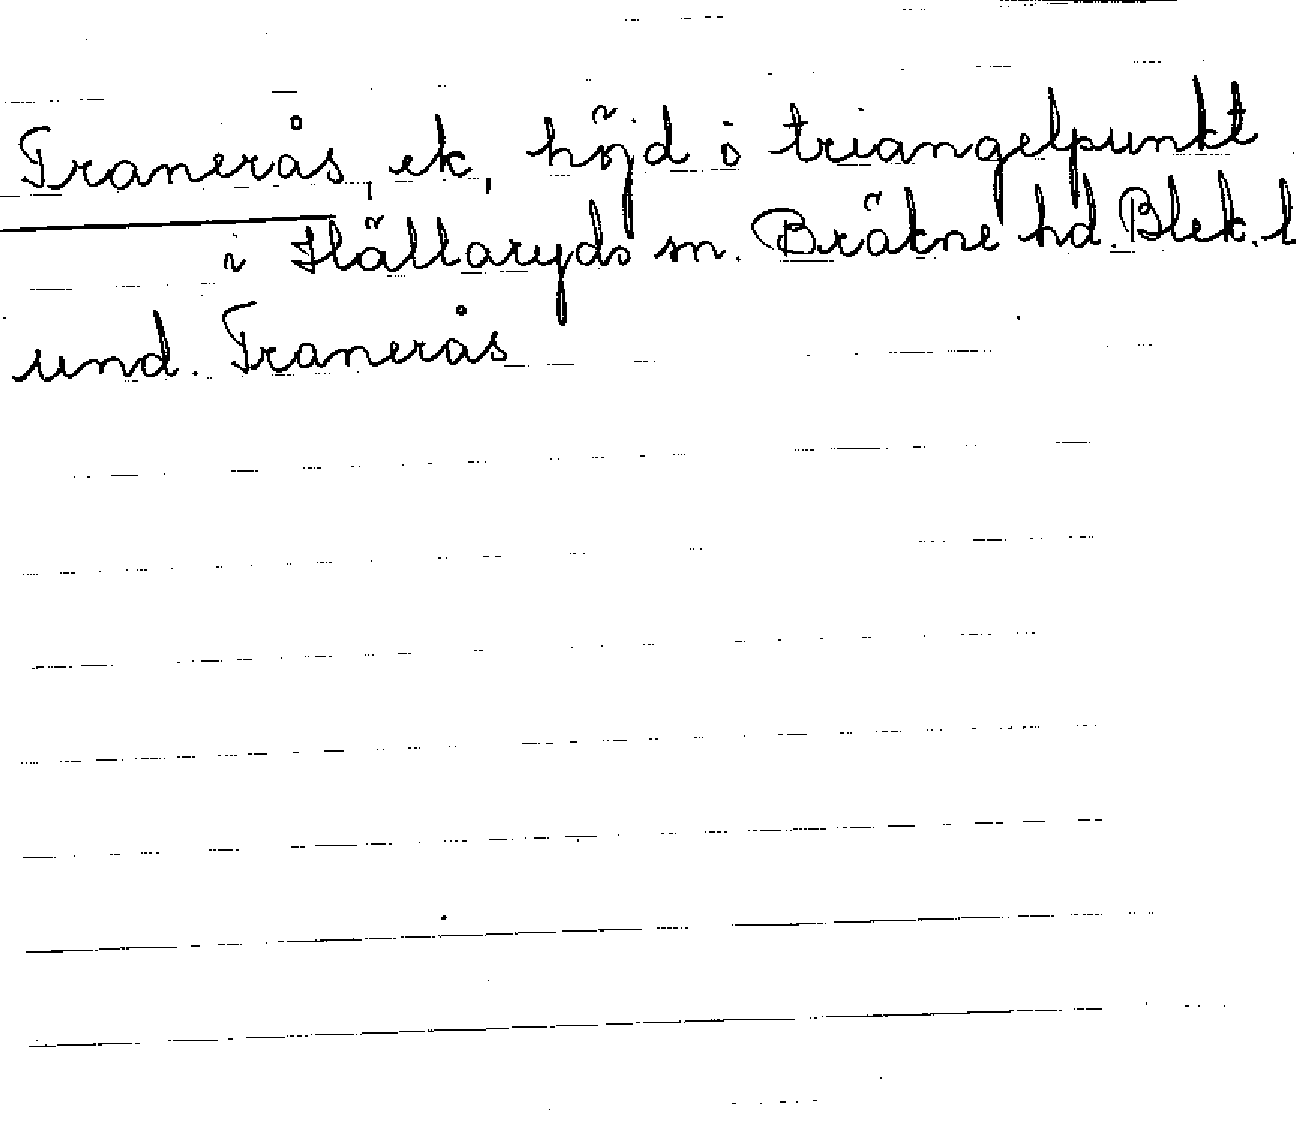 Tranerås, ek, höjd o triangelpunkt
i Hällaryds sn. Bräkne hd. Blek. l
und. Tranerås